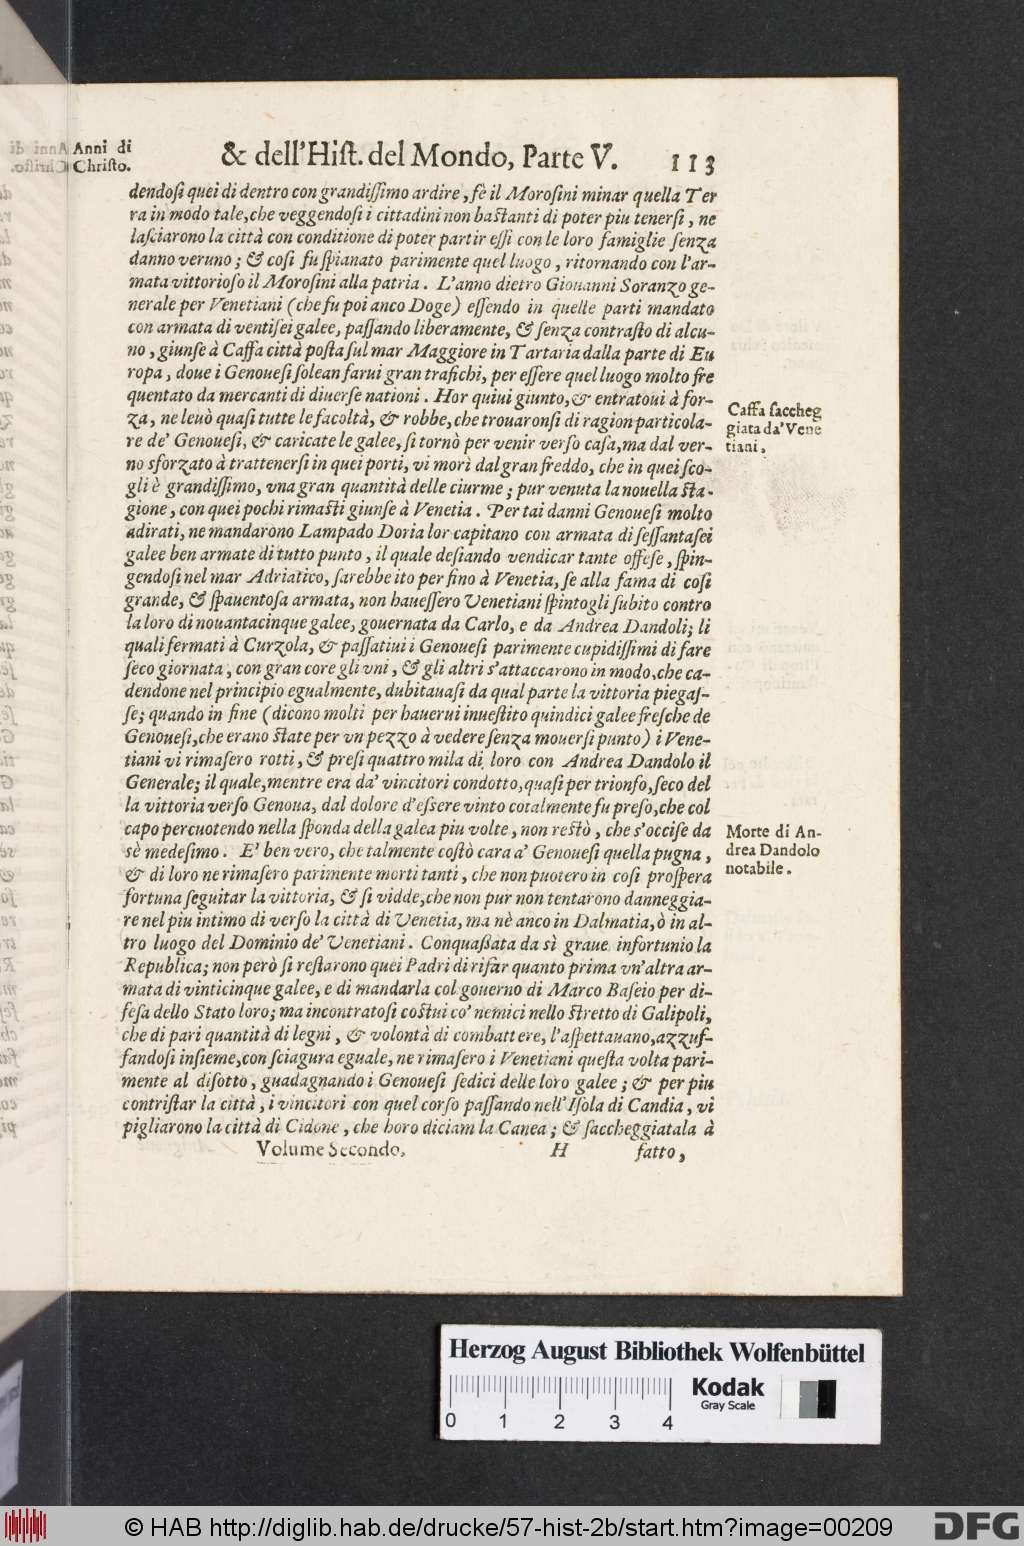 Anni di
Christo.
& dell'Hist. del Mondo, Parte V. 113
dendosi quei di dentro con grandissimo ardire, fè il Morosini minar quella Ter
ra in modo tale, che veggendosi i cittadini non bastanti di poter piu tenersi, ne
lasciarono la città con conditione di poter partir essi con le loro famiglie senza
danno veruno; & cosi fu spianato parimente quel luogo, ritornando con l'ar-
mata vittorioso il Morosini alla patria. L'anno dietro Giouanni Soranzo ge-
nerale per Venetiani (che fu poi anco Doge) essendo in quelle parti mandato
con armata di ventisei galee, passando liberamente, & senza contrasto di alcu-
no, giunse à Caffa città posta sul mar Maggiore in Tartaria dalla parte di Eu
ropa, doue i Genouesi solean farui gran trafichi, per essere quel luogo molto fre
quentato da mercanti di diuerse nationi. Hor quiui giunto, & entratoui à for-
za, ne leuò quasi tutte le facoltà, & robbe, che trouaronsi di ragion particola-
re de' Genouesi, & caricate le galee, si tornò per venir verso casa, ma dal ver-
no sforzato à trattenersi in quei porti, vi morì dal gran freddo, che in quei sco-
gli è grandissimo, vna gran quantità delle ciurme; pur venuta la nouella sta-
gione, con quei pochi rimasti giunse à Venetia. Per tai danni Genouesi molto
adirati, ne mandarono Lampado Doria lor capitano con armata di sessantasei
galee ben armate di tutto punto, il quale desiando vendicar tante offese, spin-
gendosi nel mar Adriatico, sarebbe ito per fino à Venetia, se alla fama di cosi
grande, & spauentosa armata, non hauessero Venetiani spintogli subito contro
la loro di nouantacinque galee, gouernata da Carlo, e da Andrea Dandoli; li
quali fermati à Curzola, & passatiui i Genouesi parimente cupidissimi di fare
seco giornata, con gran core gli vni, & gli altri s'attaccarono in modo, che ca-
dendone nel principio egualmente, dubitauasi da qual parte la vittoria piegas-
se; quando in fine (dicono molti per hauerui inuestito quindici galee fresche de
Genouesi, che erano state per vn pezzo à vedere senza mouersi punto) i Vene-
tiani vi rimasero rotti, & presi quattro mila di loro con Andrea Dandolo il
Generale; il quale, mentre era da' vincitori condotto, quasi per trionfo, seco del
la vittoria verso Genoua, dal dolore d'essere vinto cotalmente fu preso, che col
capo percuotendo nella sponda della galea piu volte, non restò, che s'occise da
sè medesimo. E' ben vero, che talmente costò cara a' Genouesi quella pugna,
& di loro ne rimasero parimente morti tanti, che non puotero in cosi prospera
fortuna seguitar la vittoria, & si vidde, che non pur non tentarono danneggia-
re nel piu intimo di verso la città di Venetia, ma nè anco in Dalmatia, ò in al-
tro luogo del Dominio de' Venetiani. Conquassata da sì graue infortunio la
Republica; non però si restarono quei Padri di rifar quanto prima vn'altra ar-
mata di vinticinque galee, e di mandarla col gouerno di Marco Baseio per di-
fesa dello Stato loro; ma incontratosi costui co' nemici nello stretto di Galipoli,
che di pari quantità di legni, & volontà di combattere, l'aspettauano, azzuf-
fandosi insieme, con sciagura eguale, ne rimasero i Venetiani questa volta pari-
mente al disotto, guadagnando i Genouesi sedici delle loro galee; & per piu
contristar la città, i vincitori con quel corso passando nell'Isola di Candia, vi
pigliarono la città di Cidone, che horo diciam la Canea; & saccheggiatala à
Volume Secondo. H fatto,
Caffa saccheg
giata da' Vene
tiani.
Morte di An-
drea Dandolo
notabile.
Herzog August Bibliothek Wolfenbüttel
0 1 2 3 4
Kodak
Gray Scale
© HAB http://diglib.hab.de/drucke/57-hist-2b/start.htm?image=00209
DFG